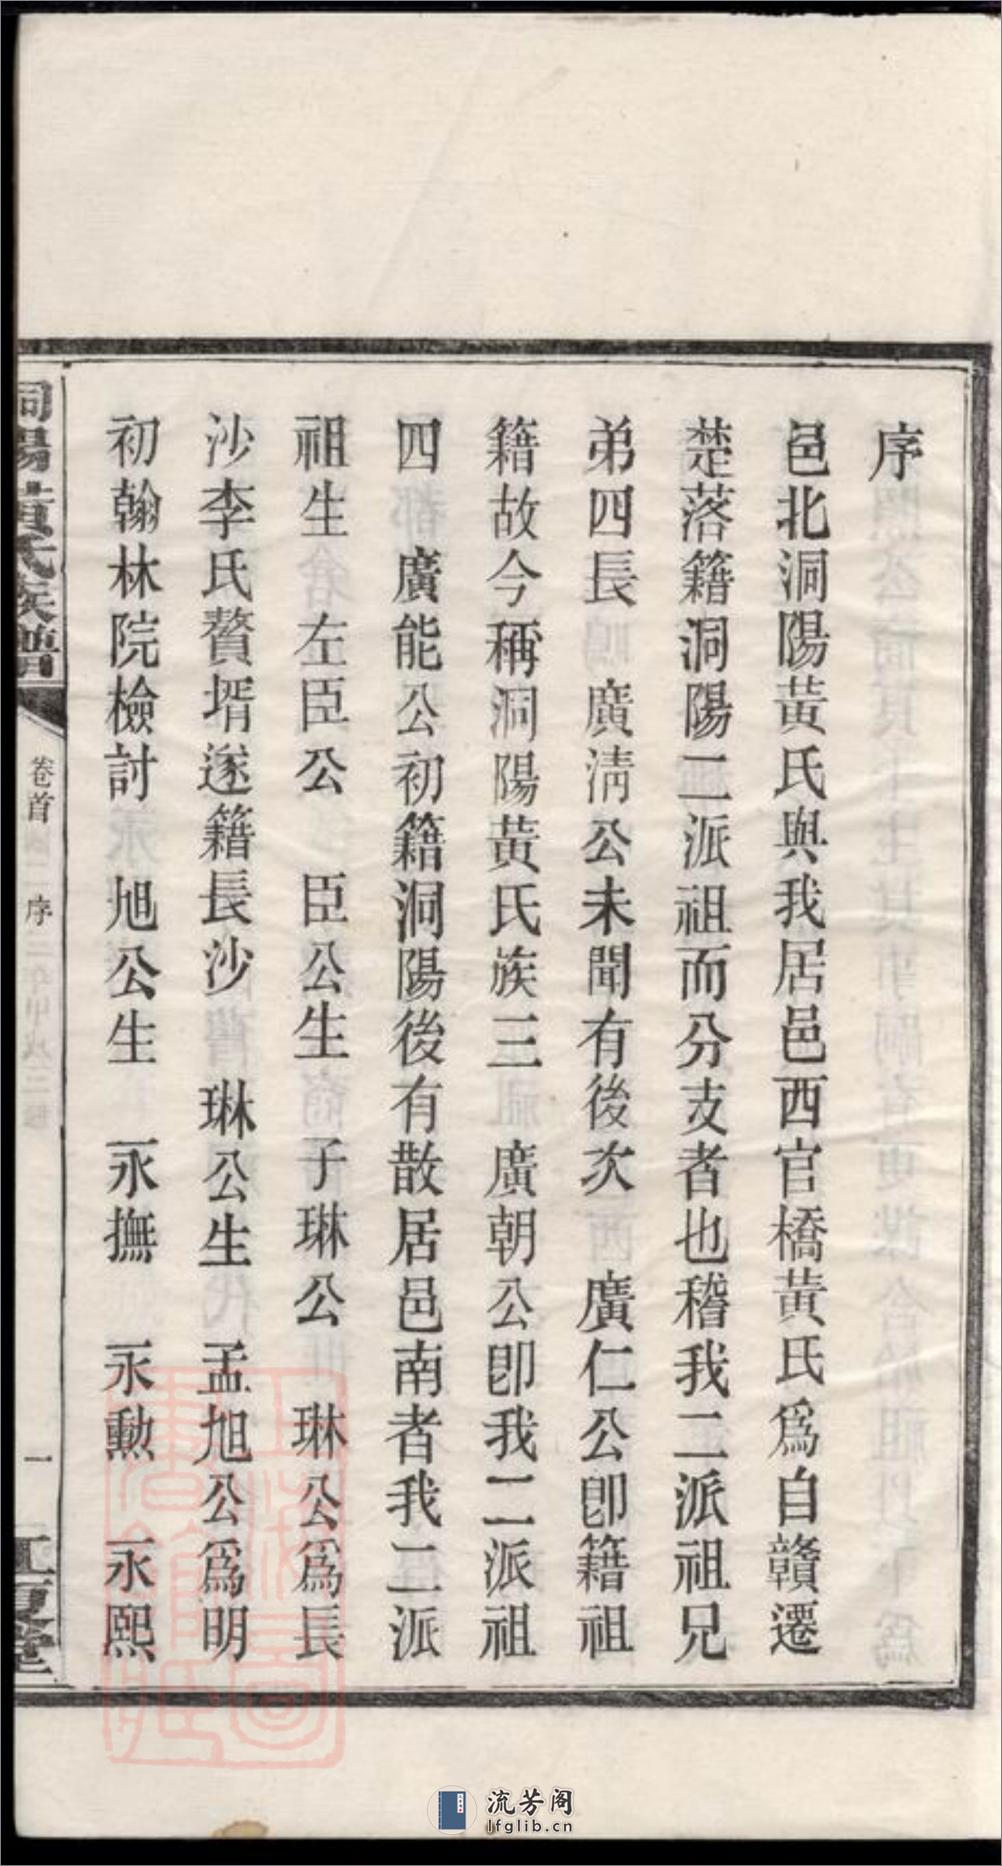 序
邑北洞陽黃氏與我居邑西官橋黃氏爲自贛遷
楚落籍洞陽二派祖而分支者也稽我二派祖兄
弟四長 廣淸公未聞有後次 廣仁公卽籍祖
籍故今稱洞陽黃氏族三 廣朝公卽我二派祖
四 廣能公初籍洞陽後有散居邑南者我二派
祖生 左臣公 臣公生 子琳公 琳公爲長
沙李氏贅壻遂籍長沙 琳公生 孟旭公爲明
初翰林院檢討 旭公生 永撫 永勲 永熙
洞陽黃氏族譜
卷首
序
一
江夏堂
流芳阁
lfglib.cn